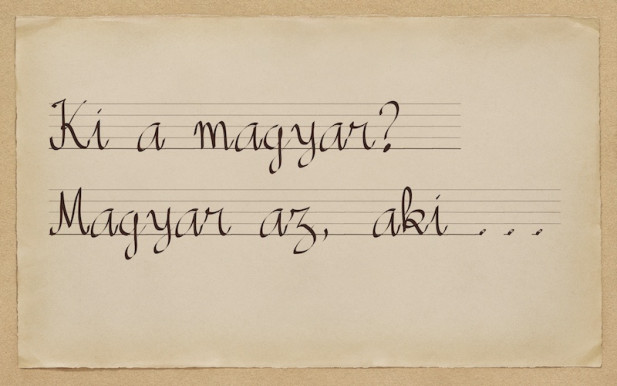 Ki a magyar?
Magyar az, aki ...